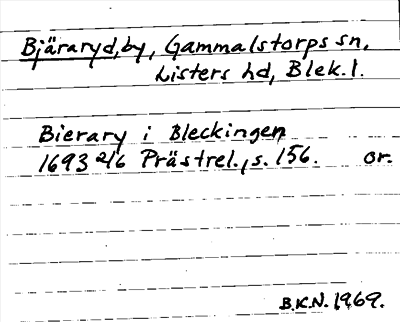 Bjäraryd, by, Gammalstorps sn,
Listers hd, Blek. l.
Bierary i Bleckingen
1693 2/6 Prästrel., s. 156. or.
B.K.N. 1969.